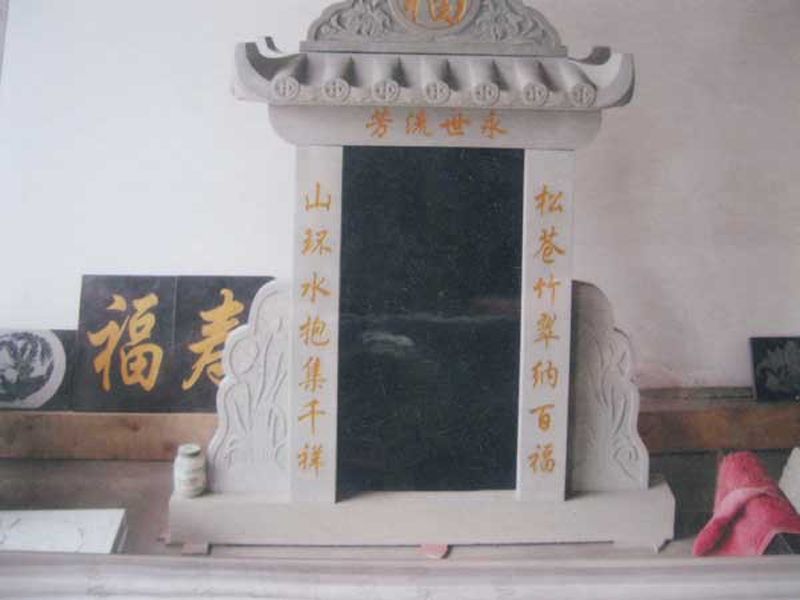 福
永世流芳
松苍竹翠纳百福
山环水抱集千祥
福寿